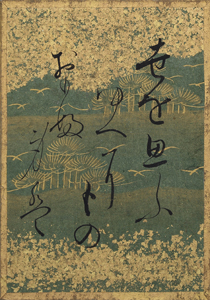 世を思ふ
ゆへにもの
おもふ
身は